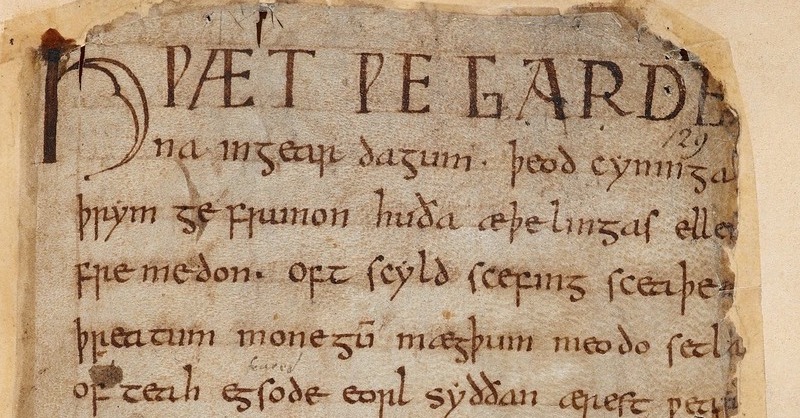 HǷÆT ǷE GARDE
na ingear dagum · þeod cyninga
þrym ge frunon huða æþelingas elle
fremedon. Oft scyld scefing sceaþe
þreatum monegū mægþum meodo setla
of teah egsode eorl syððan ærest ƿear
129